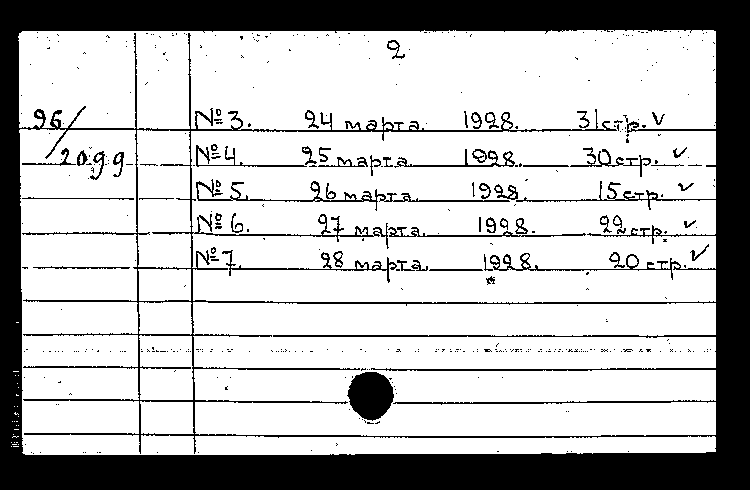 2
96/2099
№ 3. 24 марта. 1928. 31 стр. ✓
№ 4. 25 марта. 1928. 30 стр. ✓
№ 5. 26 марта. 1928. 15 стр. ✓
№ 6. 27 марта. 1928. 22 стр. ✓
№ 7. 28 марта. 1928. 20 стр. ✓